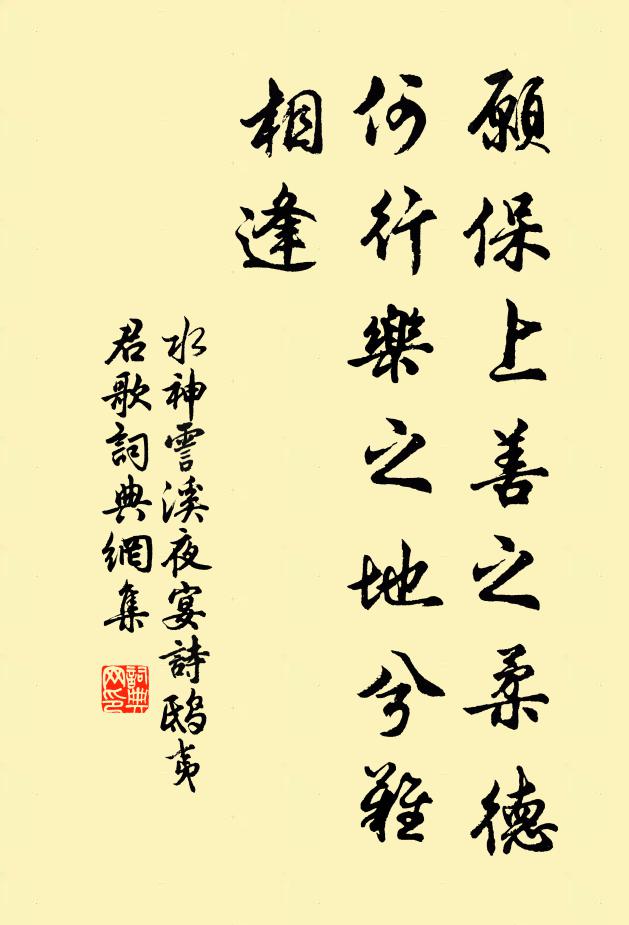 願保上善之柔德
何行樂之地兮難
相逢
水神霅溪夜宴詩鴟夷
君歌詞典網集
詞典
网印